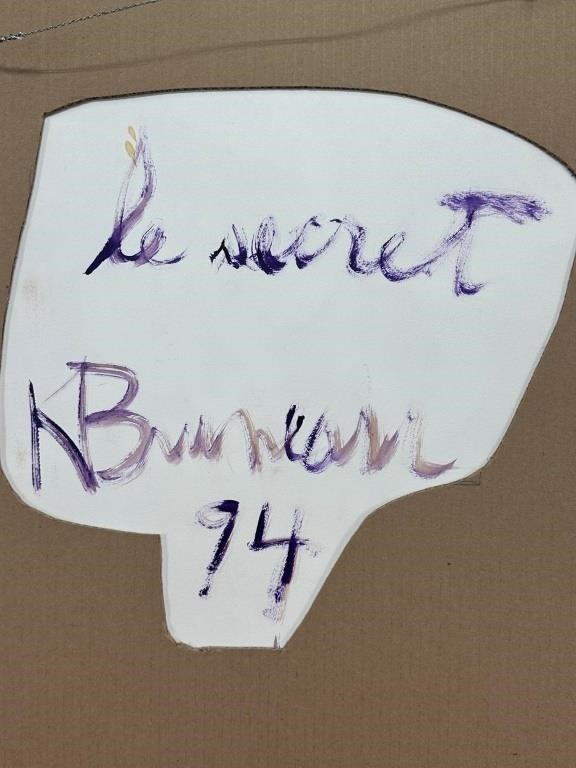 le secret
KBruneau
94